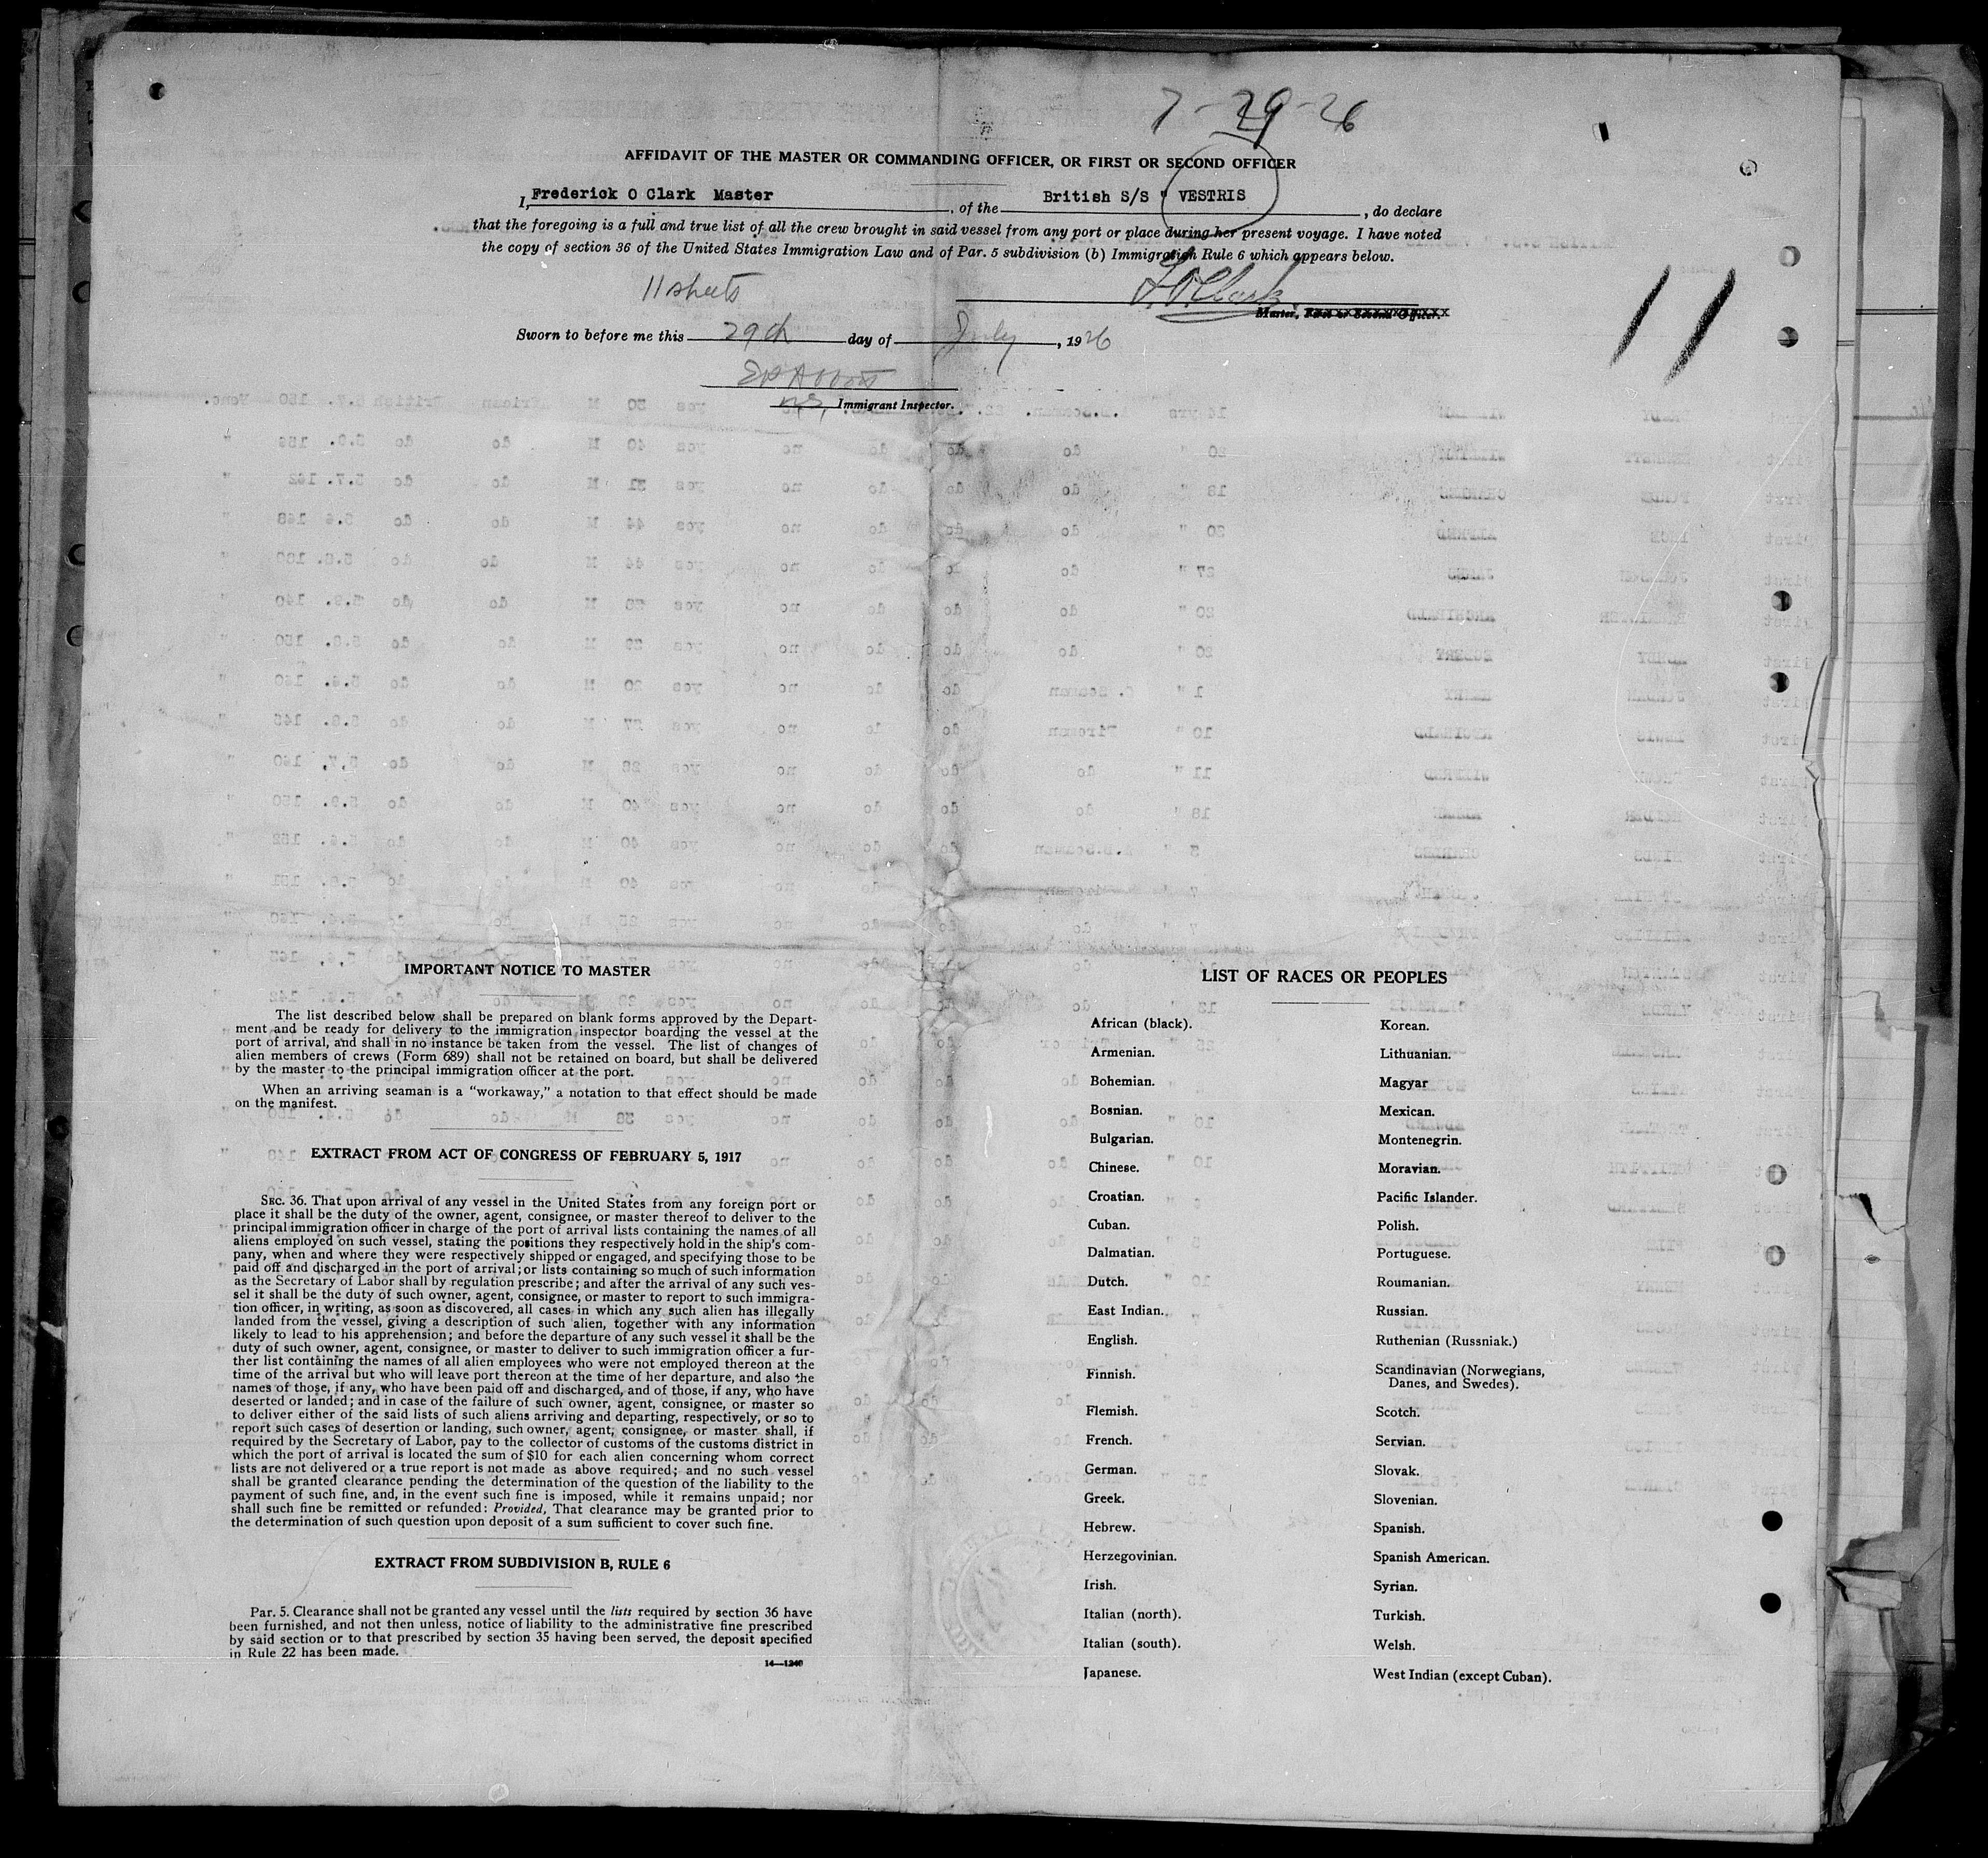 7-29-26
AFFIDAVIT OF THE MASTER OR COMMANDING OFFICER, OR FIRST OR SECOND OFFICER
I, Frederick O Clark Master, of the British S/S " VESTRIS, do declare
that the foregoing is a full and true list of all the crew brought in said vessel from any port or place during her present voyage. I have noted
the copy of section 36 of the United States Immigration Law and of Par. 5 subdivision (b) Immigration Rule 6 which appears below.
11 sheets
F. O. Clark
11
Master, First or Second Officer.
Sworn to before me this 29th day of July, 1926
Immigrant Inspector.
IMPORTANT NOTICE TO MASTER
The list described below shall be prepared on blank forms approved by the Depart-
ment and be ready for delivery to the immigration inspector boarding the vessel at the
port of arrival, and shall in no instance be taken from the vessel. The list of changes of
alien members of crews (Form 689) shall not be retained on board, but shall be delivered
by the master to the principal immigration officer at the port.
When an arriving seaman is a "workaway," a notation to that effect should be made
on the manifest.
EXTRACT FROM ACT OF CONGRESS OF FEBRUARY 5, 1917
SEC. 36. That upon arrival of any vessel in the United States from any foreign port or
place it shall be the duty of the owner, agent, consignee, or master thereof to deliver to the
principal immigration officer in charge of the port of arrival lists containing the names of all
aliens employed on such vessel, stating the positions they respectively hold in the ship's com-
pany, when and where they were respectively shipped or engaged, and specifying those to be
paid off and discharged in the port of arrival; or lists containing so much of such information
as the Secretary of Labor shall by regulation prescribe; and after the arrival of any such ves-
sel it shall be the duty of such owner, agent, consignee, or master to report to such immigra-
tion officer, in writing, as soon as discovered, all cases in which any such alien has illegally
landed from the vessel, giving a description of such alien, together with any information
likely to lead to his apprehension; and before the departure of any such vessel it shall be the
duty of such owner, agent, consignee, or master to deliver to such immigration officer a fur-
ther list containing the names of all alien employees who were not employed thereon at the
time of the arrival but who will leave port thereon at the time of her departure, and also the
names of those, if any, who have been paid off and discharged, and of those, if any, who have
deserted or landed; and in case of the failure of such owner, agent, consignee, or master so
to deliver either of the said lists of such aliens arriving and departing, respectively, or so to
report such cases of desertion or landing, such owner, agent, consignee, or master shall, if
required by the Secretary of Labor, pay to the collector of customs of the customs district in
which the port of arrival is located the sum of $10 for each alien concerning whom correct
lists are not delivered or a true report is not made as above required; and no such vessel
shall be granted clearance pending the determination of the question of the liability to the
payment of such fine, and, in the event such fine is imposed, while it remains unpaid; nor
shall such fine be remitted or refunded: Provided, That clearance may be granted prior to
the determination of such question upon deposit of a sum sufficient to cover such fine.
EXTRACT FROM SUBDIVISION B, RULE 6
Par. 5. Clearance shall not be granted any vessel until the lists required by section 36 have
been furnished, and not then unless, notice of liability to the administrative fine prescribed
by said section or to that prescribed by section 35 having been served, the deposit specified
in Rule 22 has been made.
14—1240
LIST OF RACES OR PEOPLES
African (black).
Armenian.
Bohemian.
Bosnian.
Bulgarian.
Chinese.
Croatian.
Cuban.
Dalmatian.
Dutch.
East Indian.
English.
Finnish.
Flemish.
French.
German.
Greek.
Hebrew.
Herzegovinian.
Irish.
Italian (north).
Italian (south).
Japanese.
Korean.
Lithuanian.
Magyar
Mexican.
Montenegrin.
Moravian.
Pacific Islander.
Polish.
Portuguese.
Roumanian.
Russian.
Ruthenian (Russniak.)
Scandinavian (Norwegians,
Danes, and Swedes).
Scotch.
Servian.
Slovak.
Slovenian.
Spanish.
Spanish American.
Syrian.
Turkish.
Welsh.
West Indian (except Cuban).